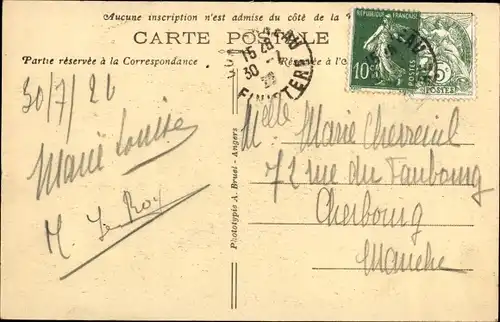 Aucune inscription n'est admise du côté de la
CARTE POSTALE
Partie réservée à la Correspondance
Réservée à l'
15 28
30 -7
FINISTERE
RÉPUBLIQUE FRANÇAISE
10
POSTES
5
POSTES
30/7/26
Marie Louise
M. Le Roy
Phototypie A. Bruel - Angers
Mlle Marie Chevreuil
72 rue du Faubourg
Cherbourg
Manche